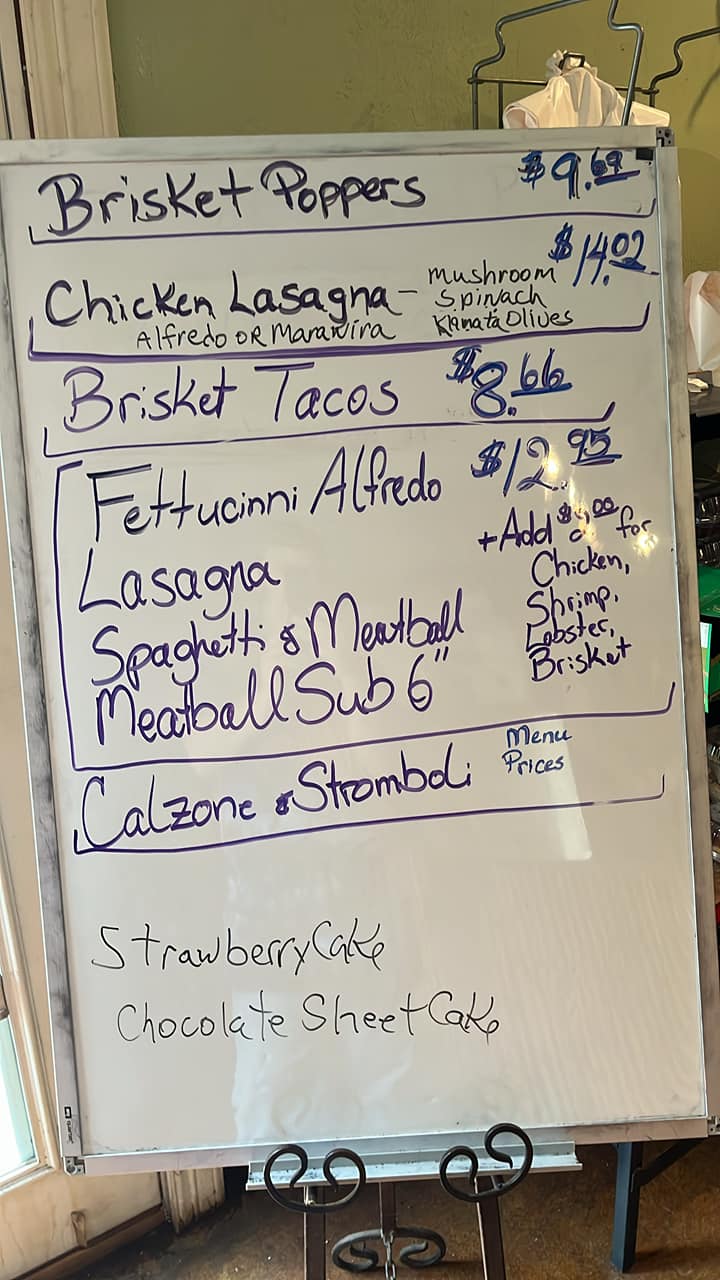 Brisket Poppers $9.69
Chicken Lasagna - Mushroom $14.02
Spinach
Alfredo OR Maranira Klamata Olives
Brisket Tacos $8.66
Fettucinni Alfredo $12.95
+Add for
Lasagna Chicken,
Shrimp,
Spaghetti & Meatball Lobster,
Meatball Sub 6" Brisket
Calzone & Stromboli Menu
Prices
Strawberry Cake
Chocolate Sheet Cake